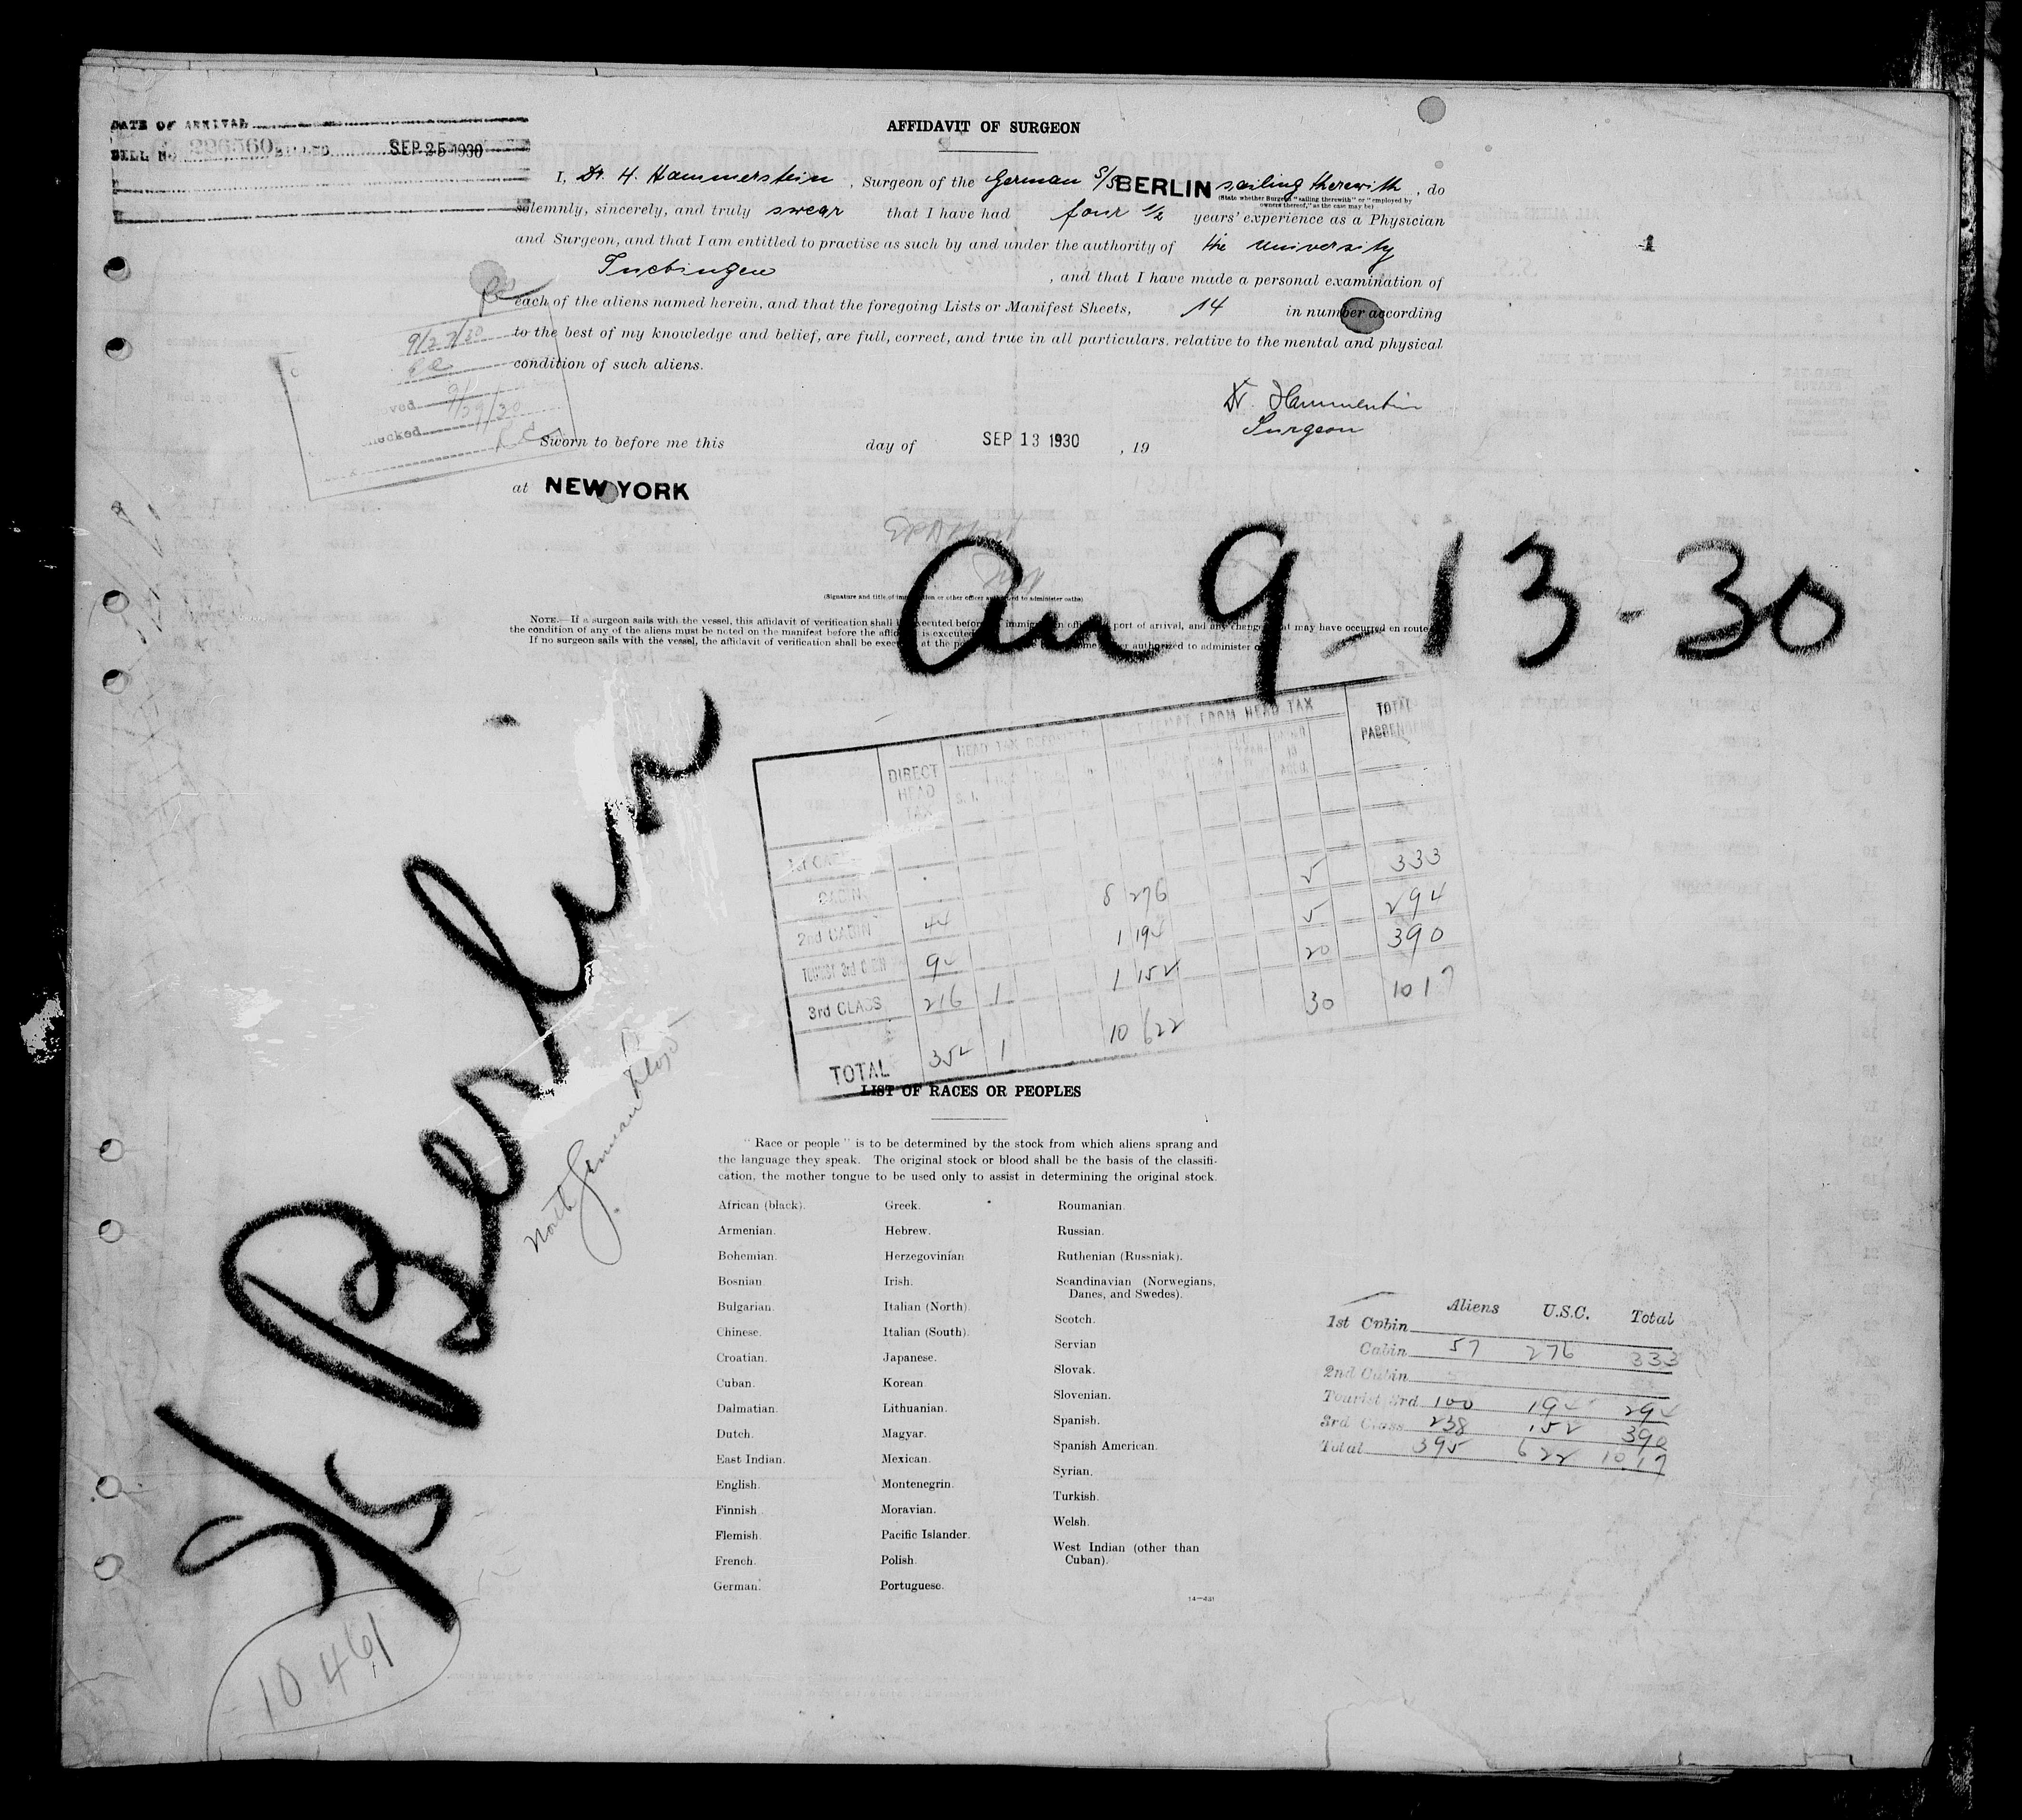 DATE OF ARRIVAL
BILL No. 296560 BILLED SEP 25 1930
AFFIDAVIT OF SURGEON
I, Dr. H. Hammerstein, Surgeon of the German S/S BERLIN sailing therewith, do
(State whether Surgeon "sailing therewith" or "employed by
owners thereof," as the case may be)
solemnly, sincerely, and truly swear that I have had four 1/2 years' experience as a Physician
and Surgeon, and that I am entitled to practise as such by and under the authority of the University
Tuebingen, and that I have made a personal examination of
each of the aliens named herein, and that the foregoing Lists or Manifest Sheets, 14 in number according
to the best of my knowledge and belief, are full, correct, and true in all particulars. relative to the mental and physical
condition of such aliens.
1
9/27/30
9/29/30
checked
Dr. Hammerstein
Surgeon
Sworn to before me this day of SEP 13 1930, 19
at NEW YORK
Arr 9-13-30
(Signature and title of immigration or other officer authorized to administer oaths)
NOTE.—If a surgeon sails with the vessel, this affidavit of verification shall be executed before immigration port of arrival, and any change that may have occurred en route
the condition of any of the aliens must be noted on the manifest before the affidavit is executed
If no surgeon sails with the vessel, the affidavit of verification shall be executed at the authorized to administer
DIRECT HEAD TAX
HEAD TAX DEPOSITED
EXEMPT FROM HEAD TAX
TOTAL PASSENGERS
S. I.
1st CABIN
CABIN 44 8 276 5 333
2nd CABIN
TOURIST 3rd CABIN 94 1 194 5 294
3rd CLASS 216 1 1 152 20 390
TOTAL 354 1 10 622 30 1017
S/S Berlin
North German Lloyd
LIST OF RACES OR PEOPLES
"Race or people" is to be determined by the stock from which aliens sprang and
the language they speak. The original stock or blood shall be the basis of the classifi-
cation, the mother tongue to be used only to assist in determining the original stock.
African (black).
Armenian.
Bohemian.
Bosnian.
Bulgarian.
Chinese.
Croatian.
Cuban.
Dalmatian.
Dutch.
East Indian.
English.
Finnish.
Flemish.
French.
German.
Greek.
Hebrew.
Herzegovinian
Irish.
Italian (North).
Italian (South).
Japanese.
Korean.
Lithuanian.
Magyar.
Mexican.
Montenegrin.
Moravian.
Pacific Islander.
Polish.
Portuguese.
Roumanian.
Russian.
Ruthenian (Russniak).
Scandinavian (Norwegians,
Danes, and Swedes).
Scotch.
Servian
Slovak.
Slovenian.
Spanish.
Spanish American.
Syrian.
Turkish.
Welsh.
West Indian (other than
Cuban).
14—431
Aliens U.S.C. Total
1st Cabin
Cabin 57 276 333
2nd Cabin
Tourist 3rd 100 194 294
3rd Class 238 152 390
Total 395 622 1017
10461